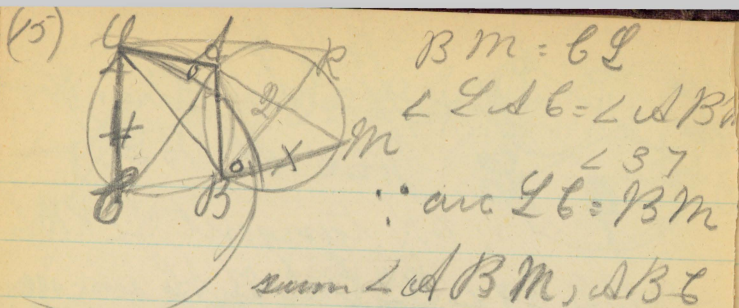 (15)
L A R
BM = CL
2
∠LAC = ∠ABM
M
∠37
C B
∵ arc LC = BM
sum ∠ABM, ABC